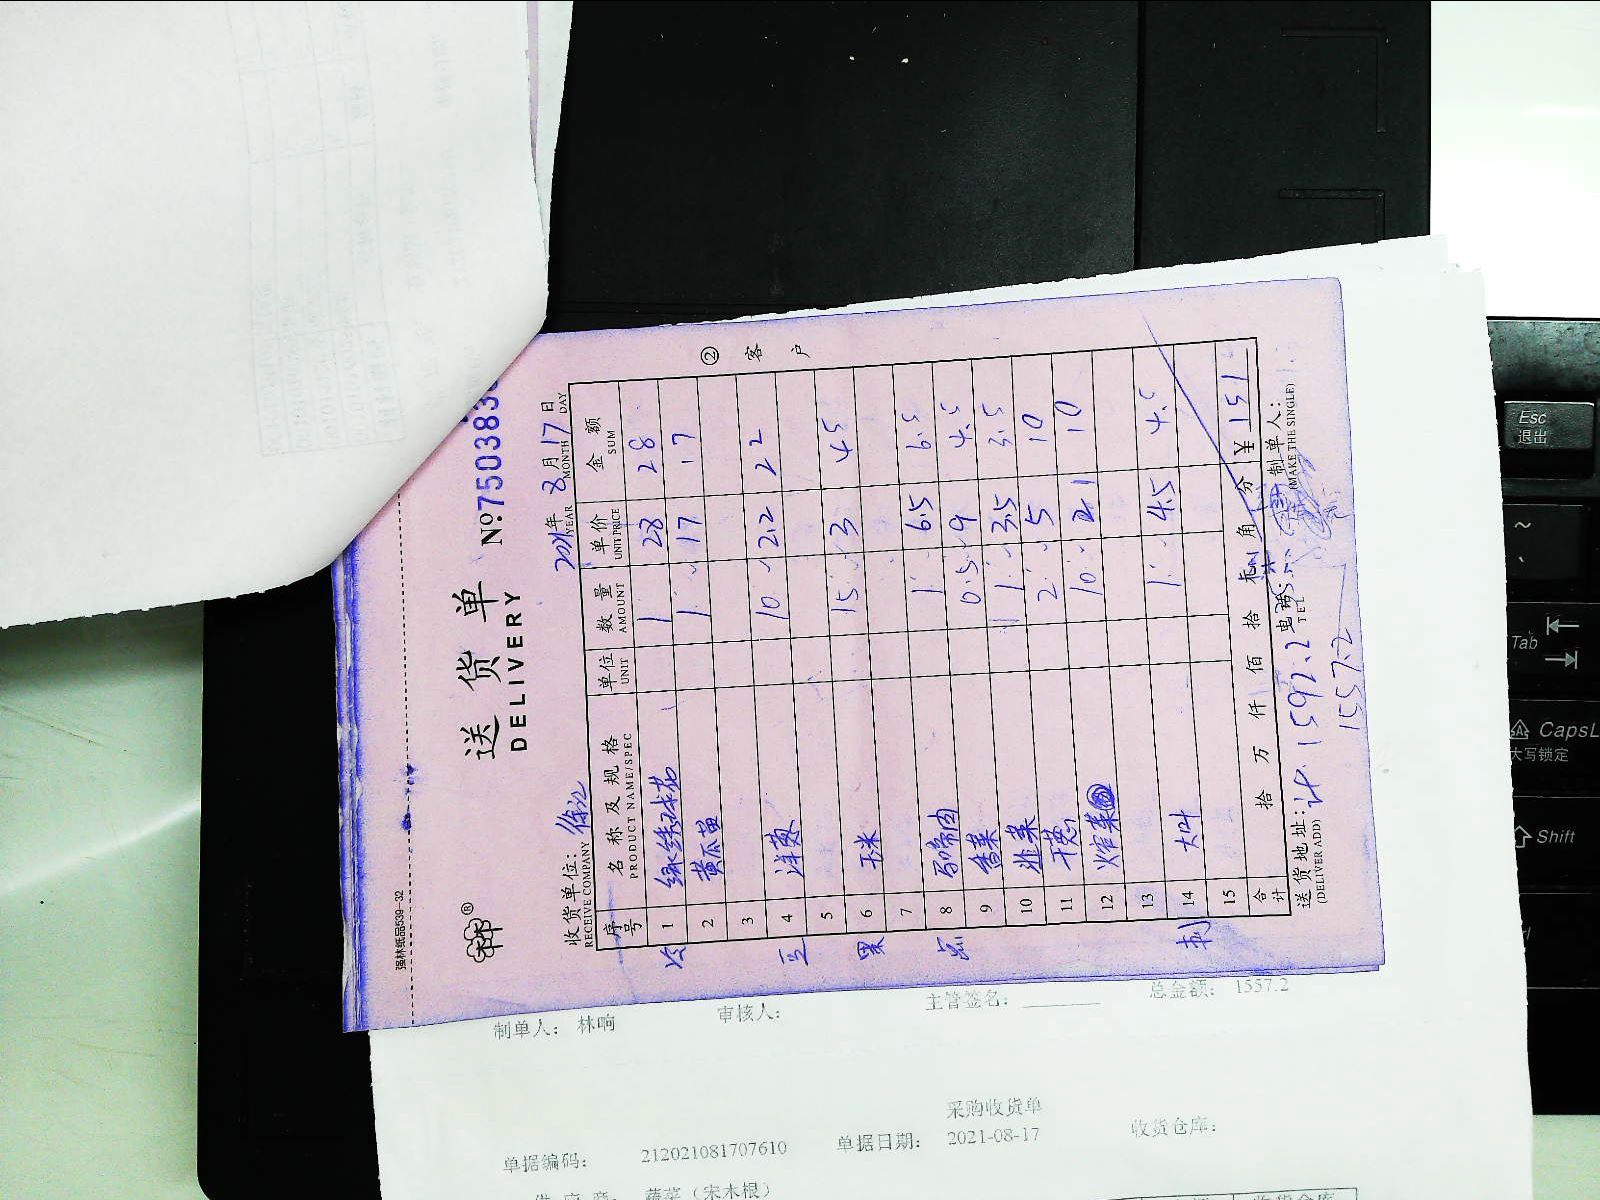 强林纸品539-32
林®
送货单
DELIVERY
№:750383
收货单位: 徐汇
RECEIVE COMPANY
2021年 8月17日
YEAR MONTH DAY
序号 名称及规格 单位 数量 单价 金额
PRODUCT NAME/SPEC UNIT AMOUNT UNIT PRICE SUM
冷 1 1 28 28
2 黄瓜苗 1 17 17
3
豆 4 洋葱 10 2.2 22
5
果 6 玉米 15 3 45
7
点 8 马蹄肉 1 6.5 6.5
9 香菜 0.5 9 4.5
10 韭菜 1 3.5 3.5
11 干葱 2 5 10
12 10 1 10
13
刺 14 大叶 1 4.5 4.5
15
合计 拾 万 仟 佰 拾 元 角 分 ¥ 151
送货地址: 计. 1597.2 电话: 制单人:
(DELIVER ADD) TEL (MAKE THE SINGLE)
1557.2
② 客户
制单人: 林响 审核人: 主管签名: 总金额: 1557.2
采购收货单
单据编码: 212021081707610 单据日期: 2021-08-17 收货仓库:
供应商: 蔬菜(宋木根)
收货仓库
Esc
退出
~
Tab
CapsL
大写锁定
Shift